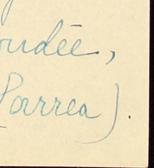 oudée,
Parrea).